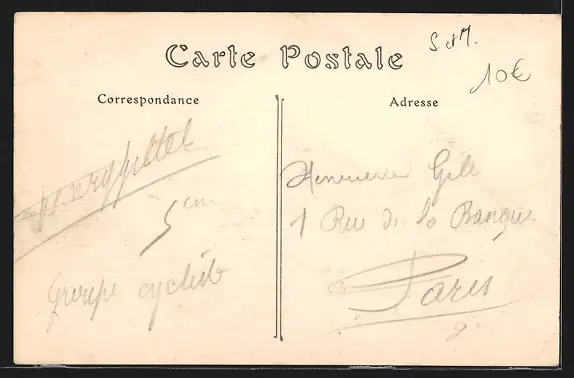 Carte Postale
S et M.
10€
Correspondance
Adresse
5 em
Groupe cycliste
1 Rue de la Banque
Paris
2